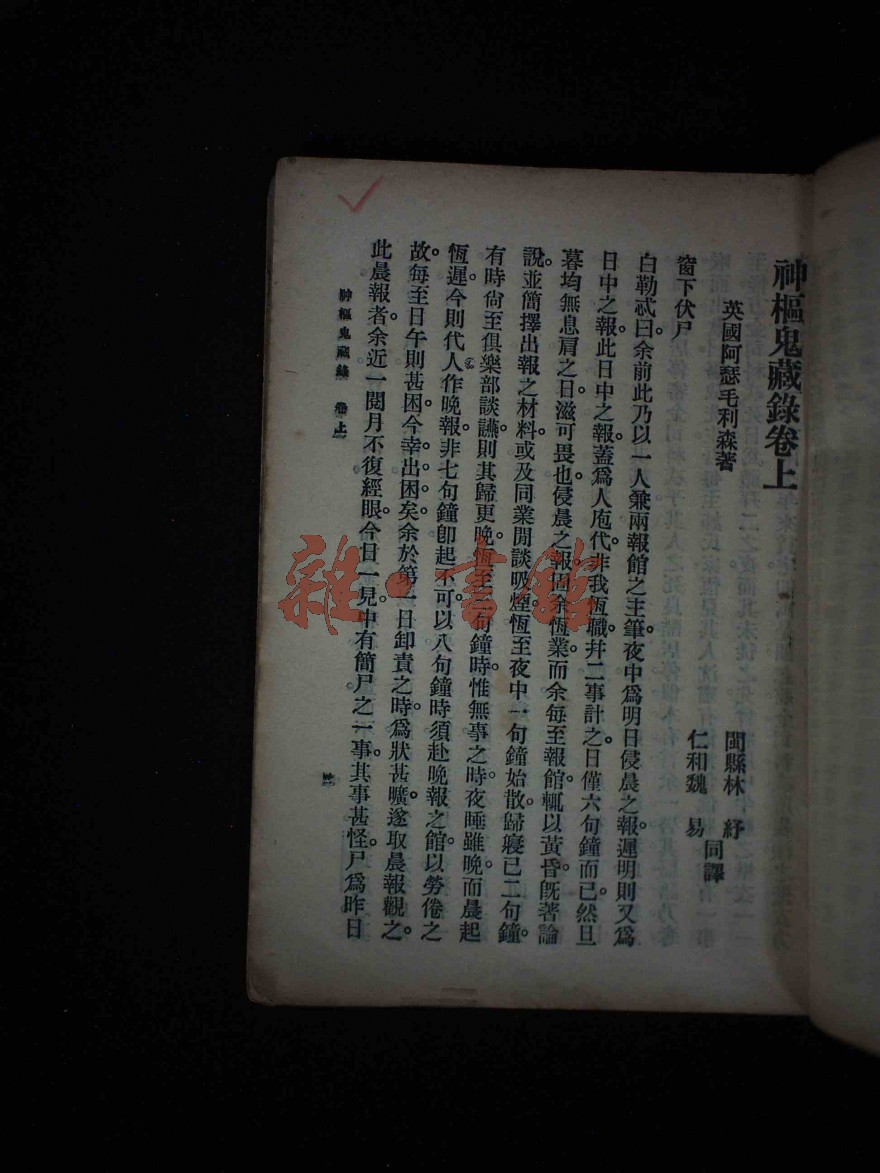 神樞鬼藏錄卷上
英國阿瑟毛利森著
閩縣林　紓
仁和魏　易
同譯
窗下伏尸
白勒忒曰。余前此乃以一人兼兩報館之主筆。夜中爲明日侵晨之報。遲明則又爲
日中之報。此日中之報蓋爲人庖代。非我恆職。幷二事計之。日僅六句鐘而已。然旦
暮均無息肩之日。滋可畏也。侵晨之報固余恆業。而余每至報館。輒以黃昏。旣著論
說。並簡擇出報之材料。或及同業閒談吸煙。恆至夜中一句鐘始散。歸寢已二句鐘。
有時尙至俱樂部談讌。則其歸更晚。恆至三句鐘時。惟無事之時。夜睡雖晚而晨起
恆遲。今則代人作晚報。非七句鐘卽起不可。以八句鐘時須赴晚報之館。以勞倦之
故。每至日午則甚困。今幸出困矣。余於第一日卸責之時。爲狀甚曠。遂取晨報觀之。
此晨報者。余近一閱月不復經眼。今日一見。中有簡尸之一事。其事甚怪。尸爲昨日
神樞鬼藏錄　卷上
一
雜·書館